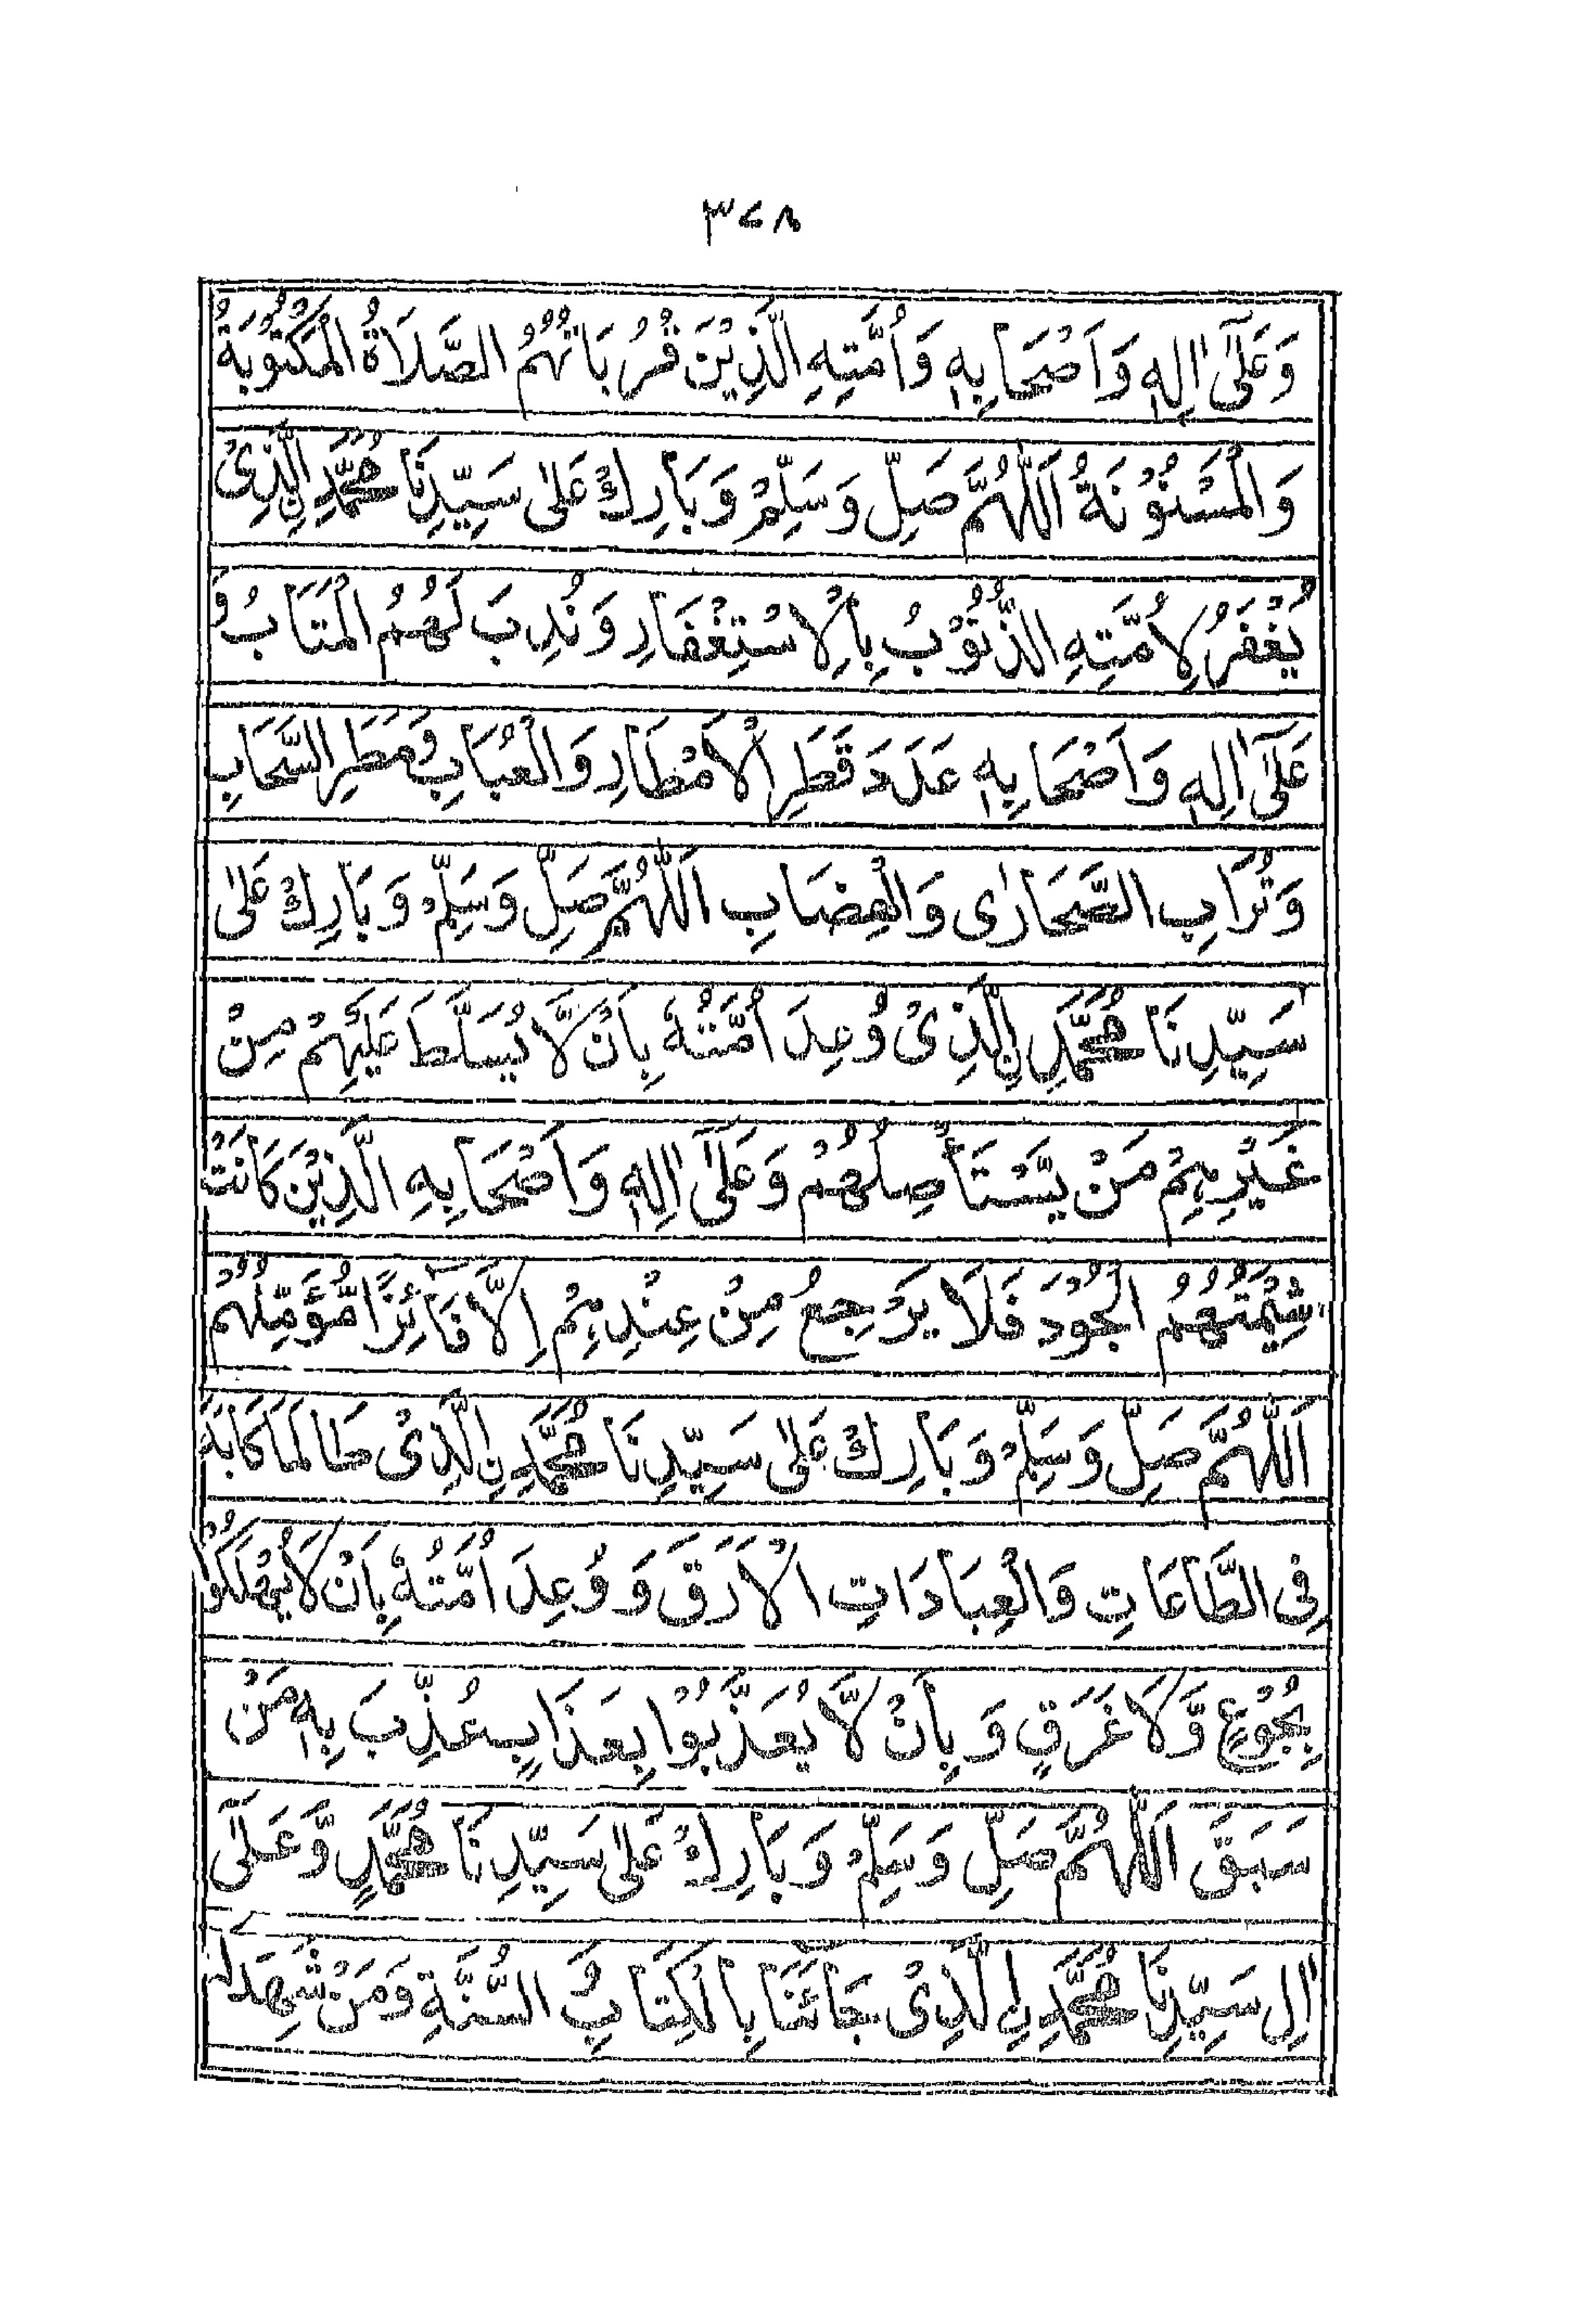 ٣٧٨
وَعَلٰٓى اٰلِهٖ وَاَصْحَابِهٖ وَاُمَّتِهِ الَّذِيْنَ قُرُبَاتُهُمُ الصَّلَاةُ الْمَكْتُوْبَةُ
وَالْمَسْنُوْنَةُ اَللّٰهُمَّ صَلِّ وَسَلِّمْ وَبَارِكْ عَلٰى سَيِّدِنَا مُحَمَّدِ نِ الَّذِىْ
يُغْفَرُ لِاُمَّتِهِ الذُّنُوْبُ بِالْاِسْتِغْفَارِ وَنُدِبَ لَهُمُ الْمَتَابُ وَ
عَلٰٓى اٰلِهٖ وَاَصْحَابِهٖ عَدَدَ قَطَرِ الْاَمْطَارِ وَالْعُبَابِ وَمَطَرِ السَّحَابِ
وَتُرَابِ الصَّحَارٰى وَالْهِضَابِ اَللّٰهُمَّ صَلِّ وَسَلِّمْ وَبَارِكْ عَلٰى
سَيِّدِنَا مُحَمَّدِ نِ الَّذِىْ وُعِدَ اُمَّتُهٗ بِاَنْ لَّا يُسَلَّطَ عَلَيْهِمْ مِنْ
غَيْرِهِمْ مَنْ يَّسْتَأْصِلُهُمْ وَعَلٰٓى اٰلِهٖ وَاَصْحَابِهِ الَّذِيْنَ كَانَتْ
شِيْمَتُهُمُ الْجُوْدَ فَلَا يَرْجِعُ مِنْ عِنْدِهِمْ اِلَّا فَآئِزًا مُّؤَمِّلُهُمْ
اَللّٰهُمَّ صَلِّ وَسَلِّمْ وَبَارِكْ عَلٰى سَيِّدِنَا مُحَمَّدِ نِ الَّذِىْ طَالَمَا كَابَدَ
فِى الطَّاعَاتِ وَالْعِبَادَاتِ الْاَرَقَ وَوُعِدَ اُمَّتُهٗ بِاَنْ لَا يُهْلَكُوْا
بِجُوْعٍ وَّلَا غَرَقٍ وَبِاَنْ لَّا يُعَذَّبُوْا بِعَذَابٍ عُذِّبَ بِهٖ مَنْ
سَبَقَ اَللّٰهُمَّ صَلِّ وَسَلِّمْ وَبَارِكْ عَلٰى سَيِّدِنَا مُحَمَّدٍ وَّعَلٰٓى
اٰلِ سَيِّدِنَا مُحَمَّدِ نِ الَّذِىْ جَائَنَا بِالْكِتَابِ وَ السُّنَّةِ وَمَنْ شَهِدَ لَهٗ